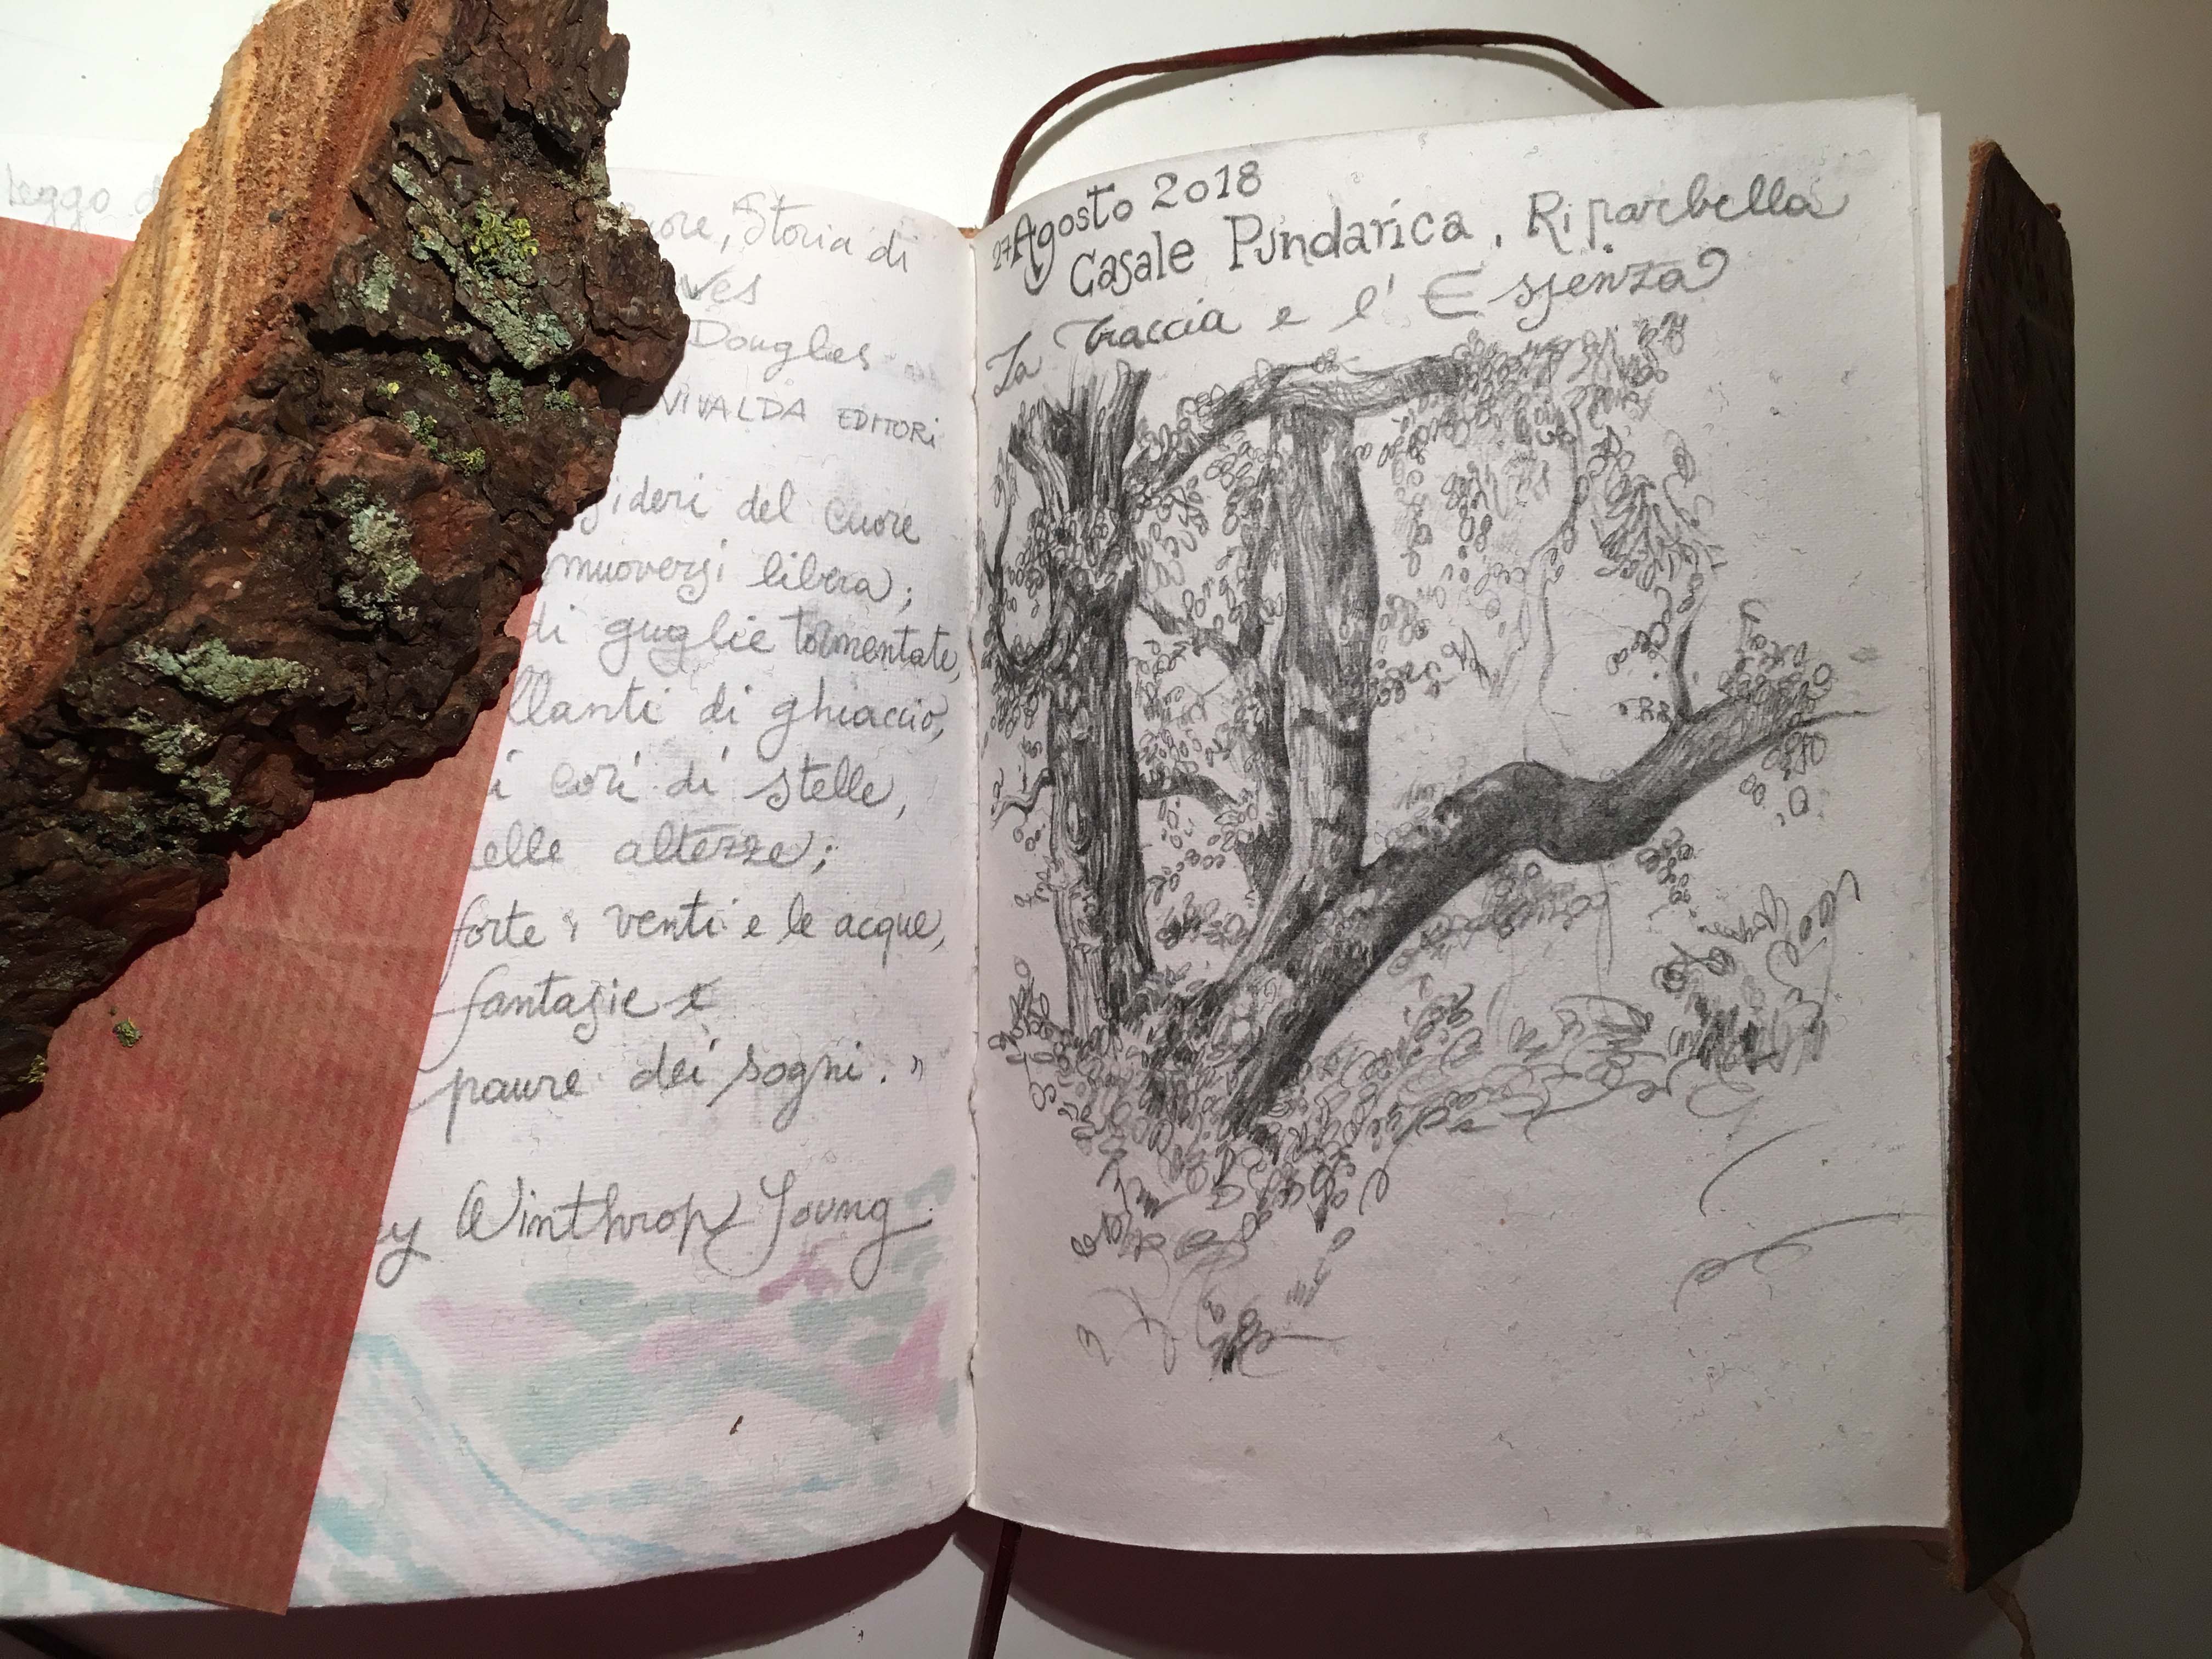 leggo
Storia di
Douglas
VIVALDA EDITORI
del cuore
muoversi libera;
di guglie tormentate,
di ghiaccio,
cori di stelle,
altezze;
forte i venti e le acque,
fantasie e
paure dei sogni."
Winthrop Young
27 Agosto 2018
Casale Pundarica, Riparbella
La Traccia e l'Essenza